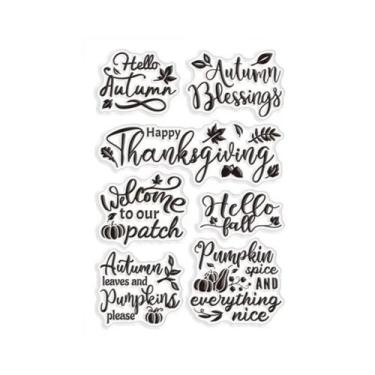 Hello
Autumn
Autumn
Blessings
Happy
Thanksgiving
Welcome
to our
patch
Hello
fall
Autumn
leaves and
Pumpkins
please
Pumpkin
spice
AND
everything
nice